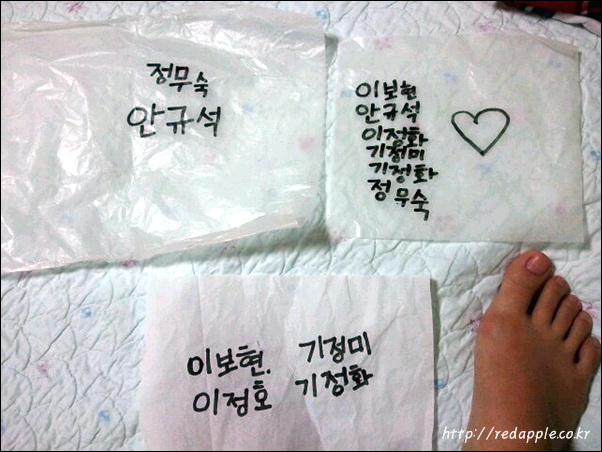 정무숙
안규석
이보현
안규석
이정화
기정미
기정화
정무숙
이보현. 기정미
이정호 기정화
http://redapple.co.kr